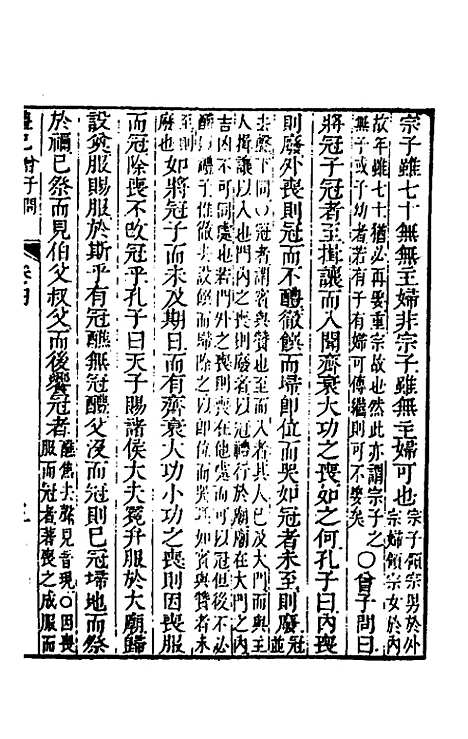 宗子雖七十無無主婦非宗子雖無主婦可也宗子領宗男於外宗婦領宗女於內
故年雖七十猶必再娶重宗故也然此亦謂宗子之無子或子幼者若有子有婦可傳繼則可不娶矣○曾子問曰
將冠子冠者至揖讓而入聞齊衰大功之喪如之何孔子曰內喪
則廢外喪則冠而不醴徹饌而埽卽位而哭如冠者未至則廢冠並
去聲下同○冠者謂賓與贊也至而入者其人已及大門而與主人揖讓以入也門內之喪則廢者以冠禮行於廟廟在大門之內
吉凶不可同處也若門外之喪則喪在他處而可以冠但後不必醴子惟徹去設饌而埽除之以卽位而哭耳如賓與贊者未至則
廢也如將冠子而未及期日而有齊衰大功小功之喪則因喪服
而冠除喪不改冠乎孔子曰天子賜諸侯大夫冕弁服於大廟歸
設奠服賜服於斯乎有冠醮無冠醴父沒而冠則已冠埽地而祭
於禰已祭而見伯父叔父而後饗冠者醮焦去聲見音現○因喪服而冠者著喪之成服而
禮記曾子問
卷四